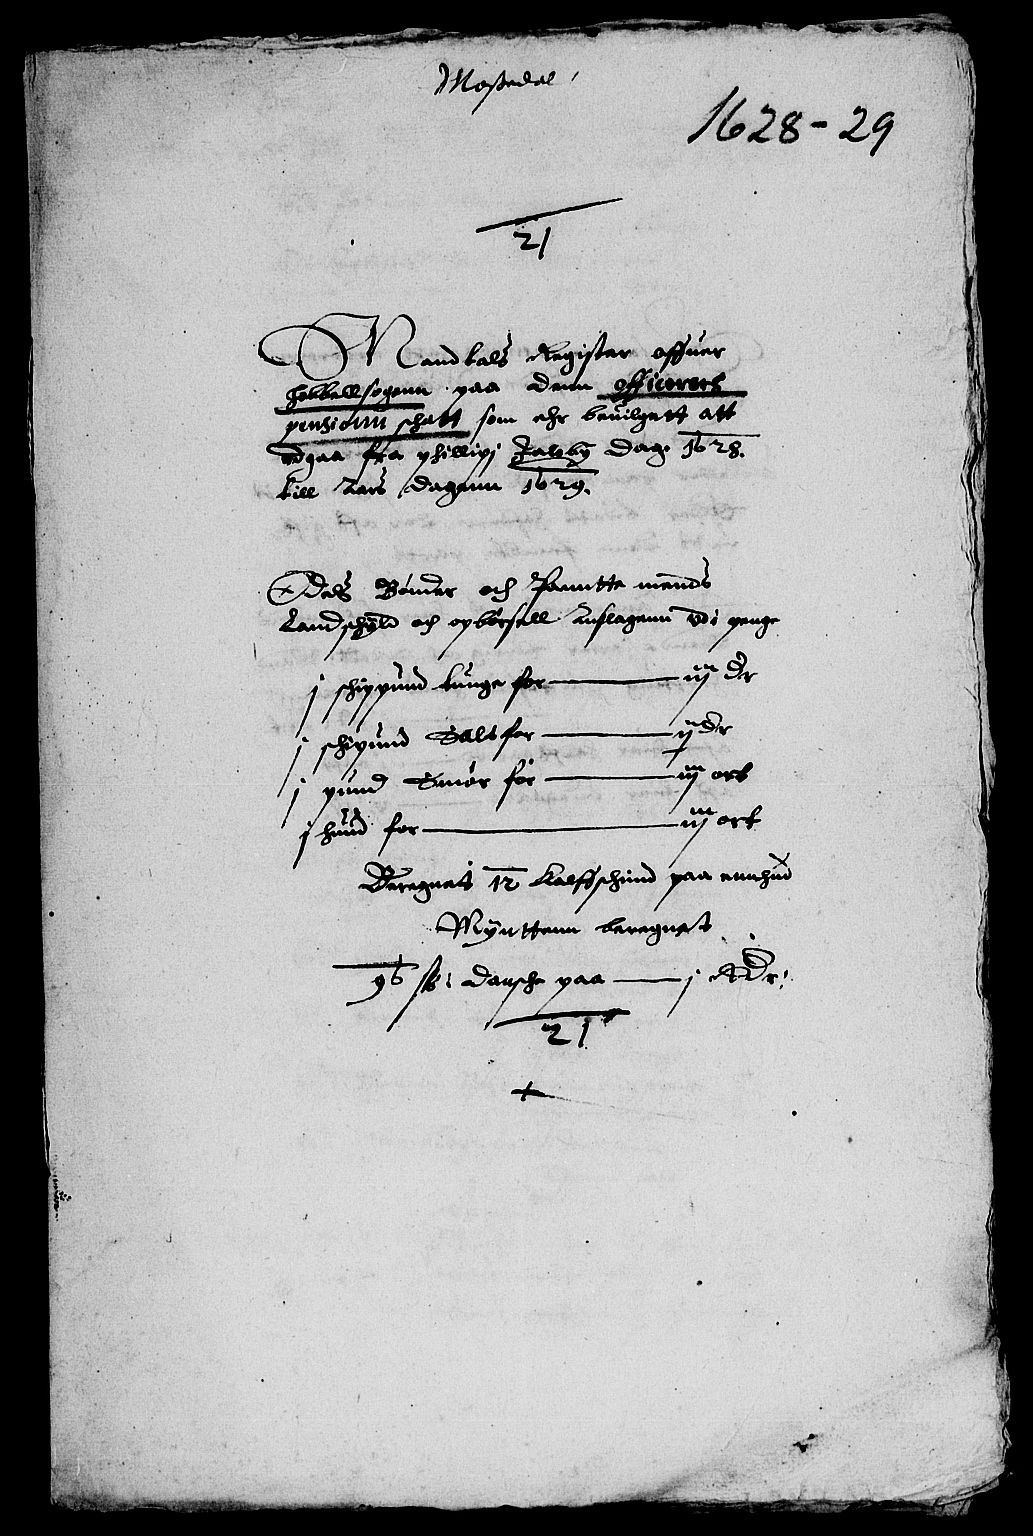 Mossedal
1628-29
21
Mandtals Register offuer
Hobbellsogenn paa denn officerers
pensionn schatt som ehr beuilgett att
vdgaa fra phillipj Jakoby Dag: 1628.
till Aars dagenn 1629.
Odels Bønder och Panntte mends
Landschyld och opbørsell Anslagenn vdj penge
j schippund tunge for iiij dr
j schipund Salt for ij dr
j pund Smør for iij ort
j hud for iiij ort
Beregnets 12 Kalfschind paa enn hud
Mÿnttenn beregnet
96 sk: dansche paa j Rdr:
21